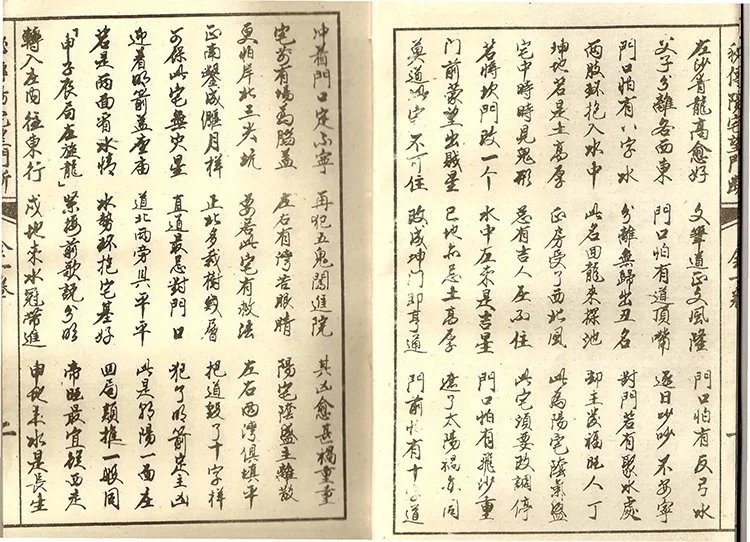 秘傳陽宅望門斷 全一卷 一
左沙青龍高愈好 文筆道正文風隆 門口怕有反弓水
父子分離各西東 門口怕有道頂嘴 逐日吵吵不安寧
門口怕有八字水 分離無歸出丑名 對門若有聚水處
兩股环抱入水中 此名回龍來探池 卻主發福旺人丁
坤地若是土高厚 正房受了西北風 此為陽宅陰氣盛
宅中時時見鬼形 总有吉人在不住 此宅須要改調停
若將坎門改一个 水中在來是吉星 門口怕有飛沙重
門前蒙望出賊星 巳地亦忌土高厚 遮了太陽禍亦同
莫道此宅不可住 改成坤門即亨通 門前怕有十字道
冲着門口定不寧 再犯五鬼闖進院 其凶愈甚禍重重
宅前有塲為腦蓋 左右有灣若眼睛 陽宅陰盛主離散
更怕岸北三尖坑 要若此宅有救法 左右两灣俱填平
正南鑿成月样 正北多栽樹幾層 把道毀了十字样
方保此宅無火星 直道最忌對門口 犯了明箭是主凶
迎着明箭蓋座庙 道北两旁具平平 此是陽一面座
若是两面有水情 水勢环抱宅基好 四局類推一般同
「申子辰局左旋龍」 緊接前歌説分明 帝旺最宜從西走
轉入左向往東行 戌地来水冠帶進 申地来水是長生
全一卷 二